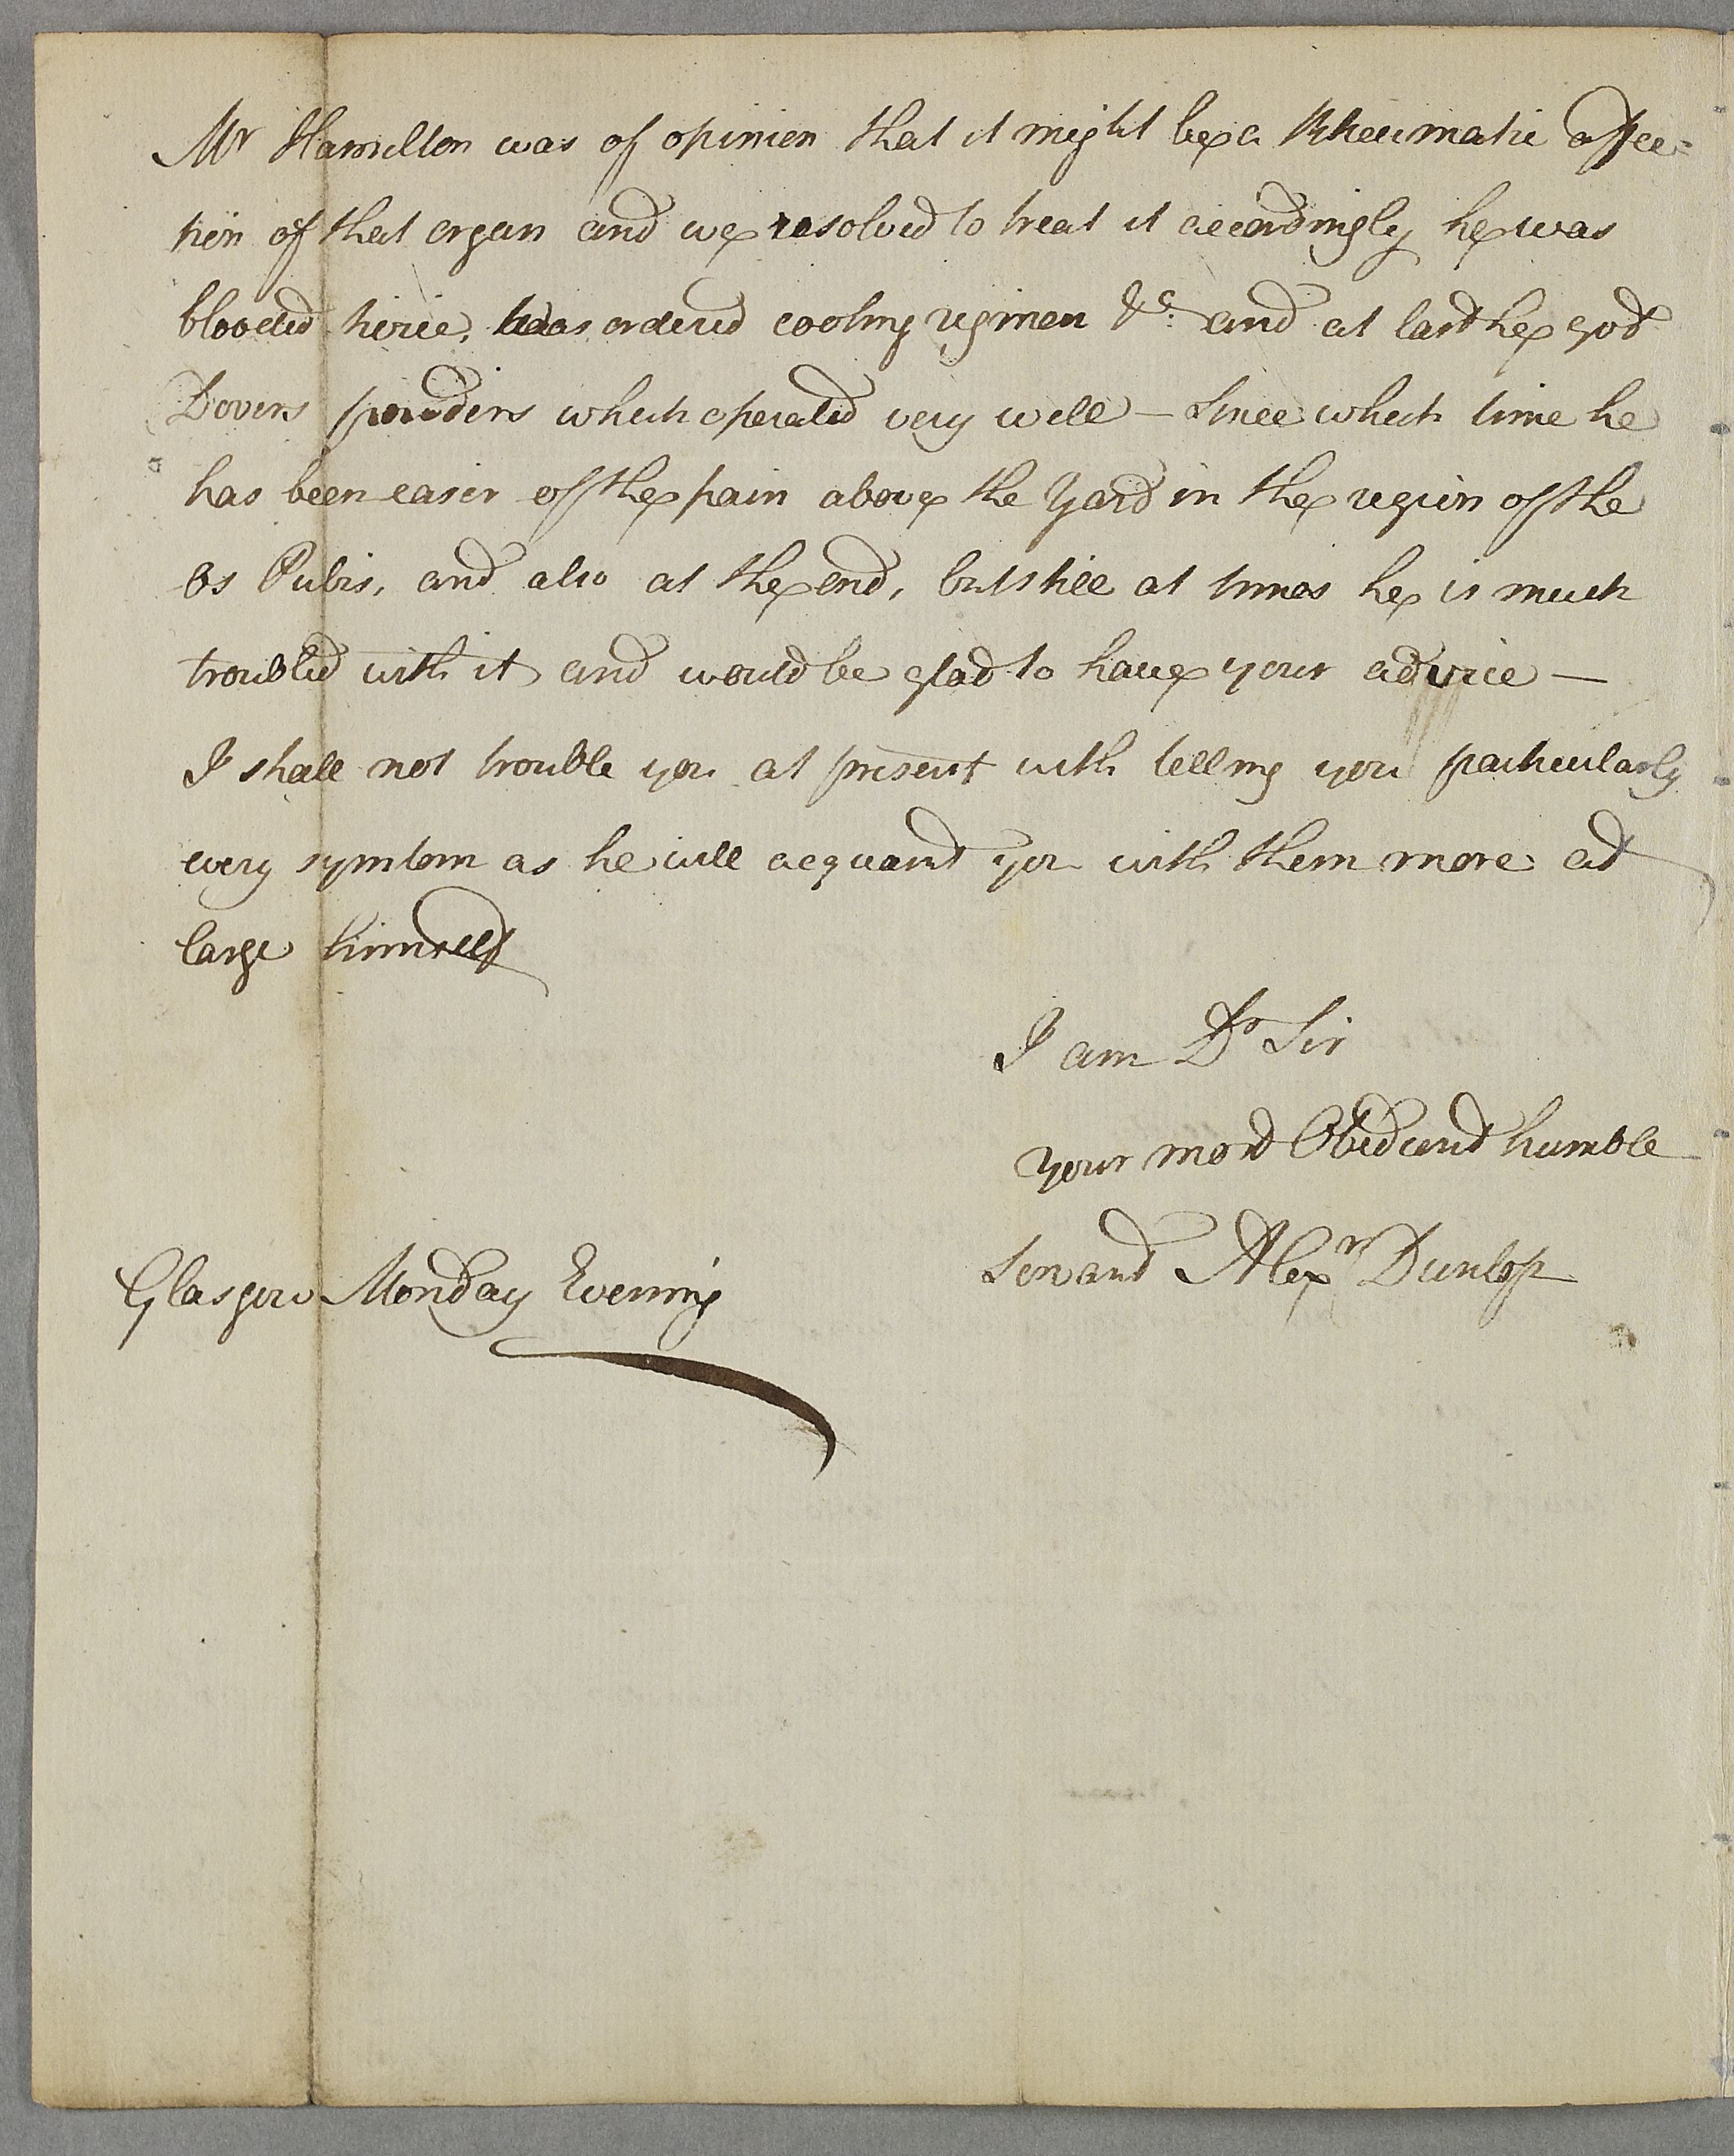 Mr Hamilton was of opinion that it might be a Rheumatic affec=
tion of that organ and we resolved to treat it accordingly he was
blooded twice, was ordered cooling regimen &c: and at last he got
Dovers powders which operated very well – Since which time he
has been easier of the pain above the Yard in the region of the
Os Pubis, and also at the end, but still at times he is much
troubled with it and would be glad to have your advice –
I shall not trouble you at present with telling you particularly
every symtom as he will acquaint you with them more at
large himself
I am Dr Sir
your most Obedient humble
Servant Alexr Dunlop
Glasgow Monday Evening